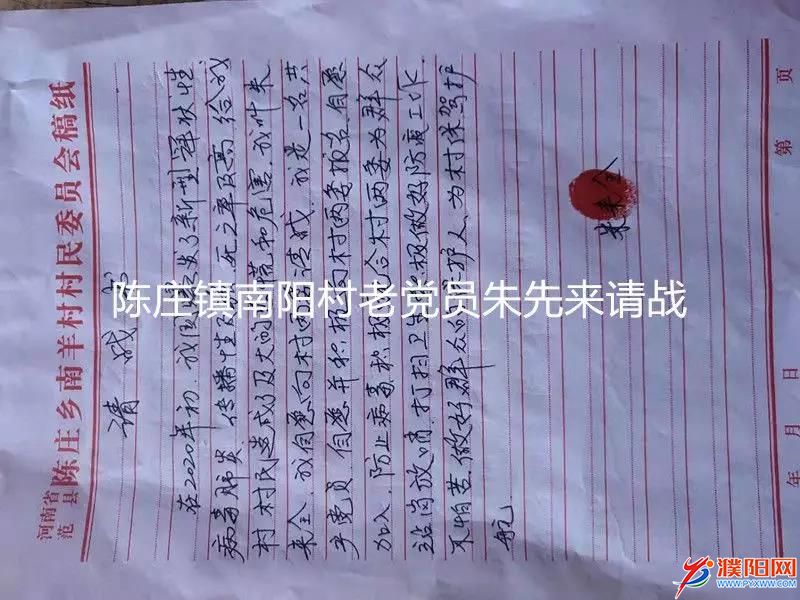 河南省
范县
陈庄乡南羊村村民委员会稿纸
请战书
在2020年初，我国爆发了新型冠状性
病毒肺炎，传播性 死亡率极高，给我
村村民造成了及大的 和危害，我叫朱
来全，我自愿向村两 请战，我是一名共
产党员，自愿并积极向村两委报名，自愿
加入，防止病毒，积极配合村两委为群众
站岗放哨，打扫卫生 积极做好防疫工作，
不怕苦，做好群众的守护人，为村保驾护
航
朱来全
年 月 日
第 页
陈庄镇南阳村老党员朱先来请战
濮阳网
www.PYXWW.COM